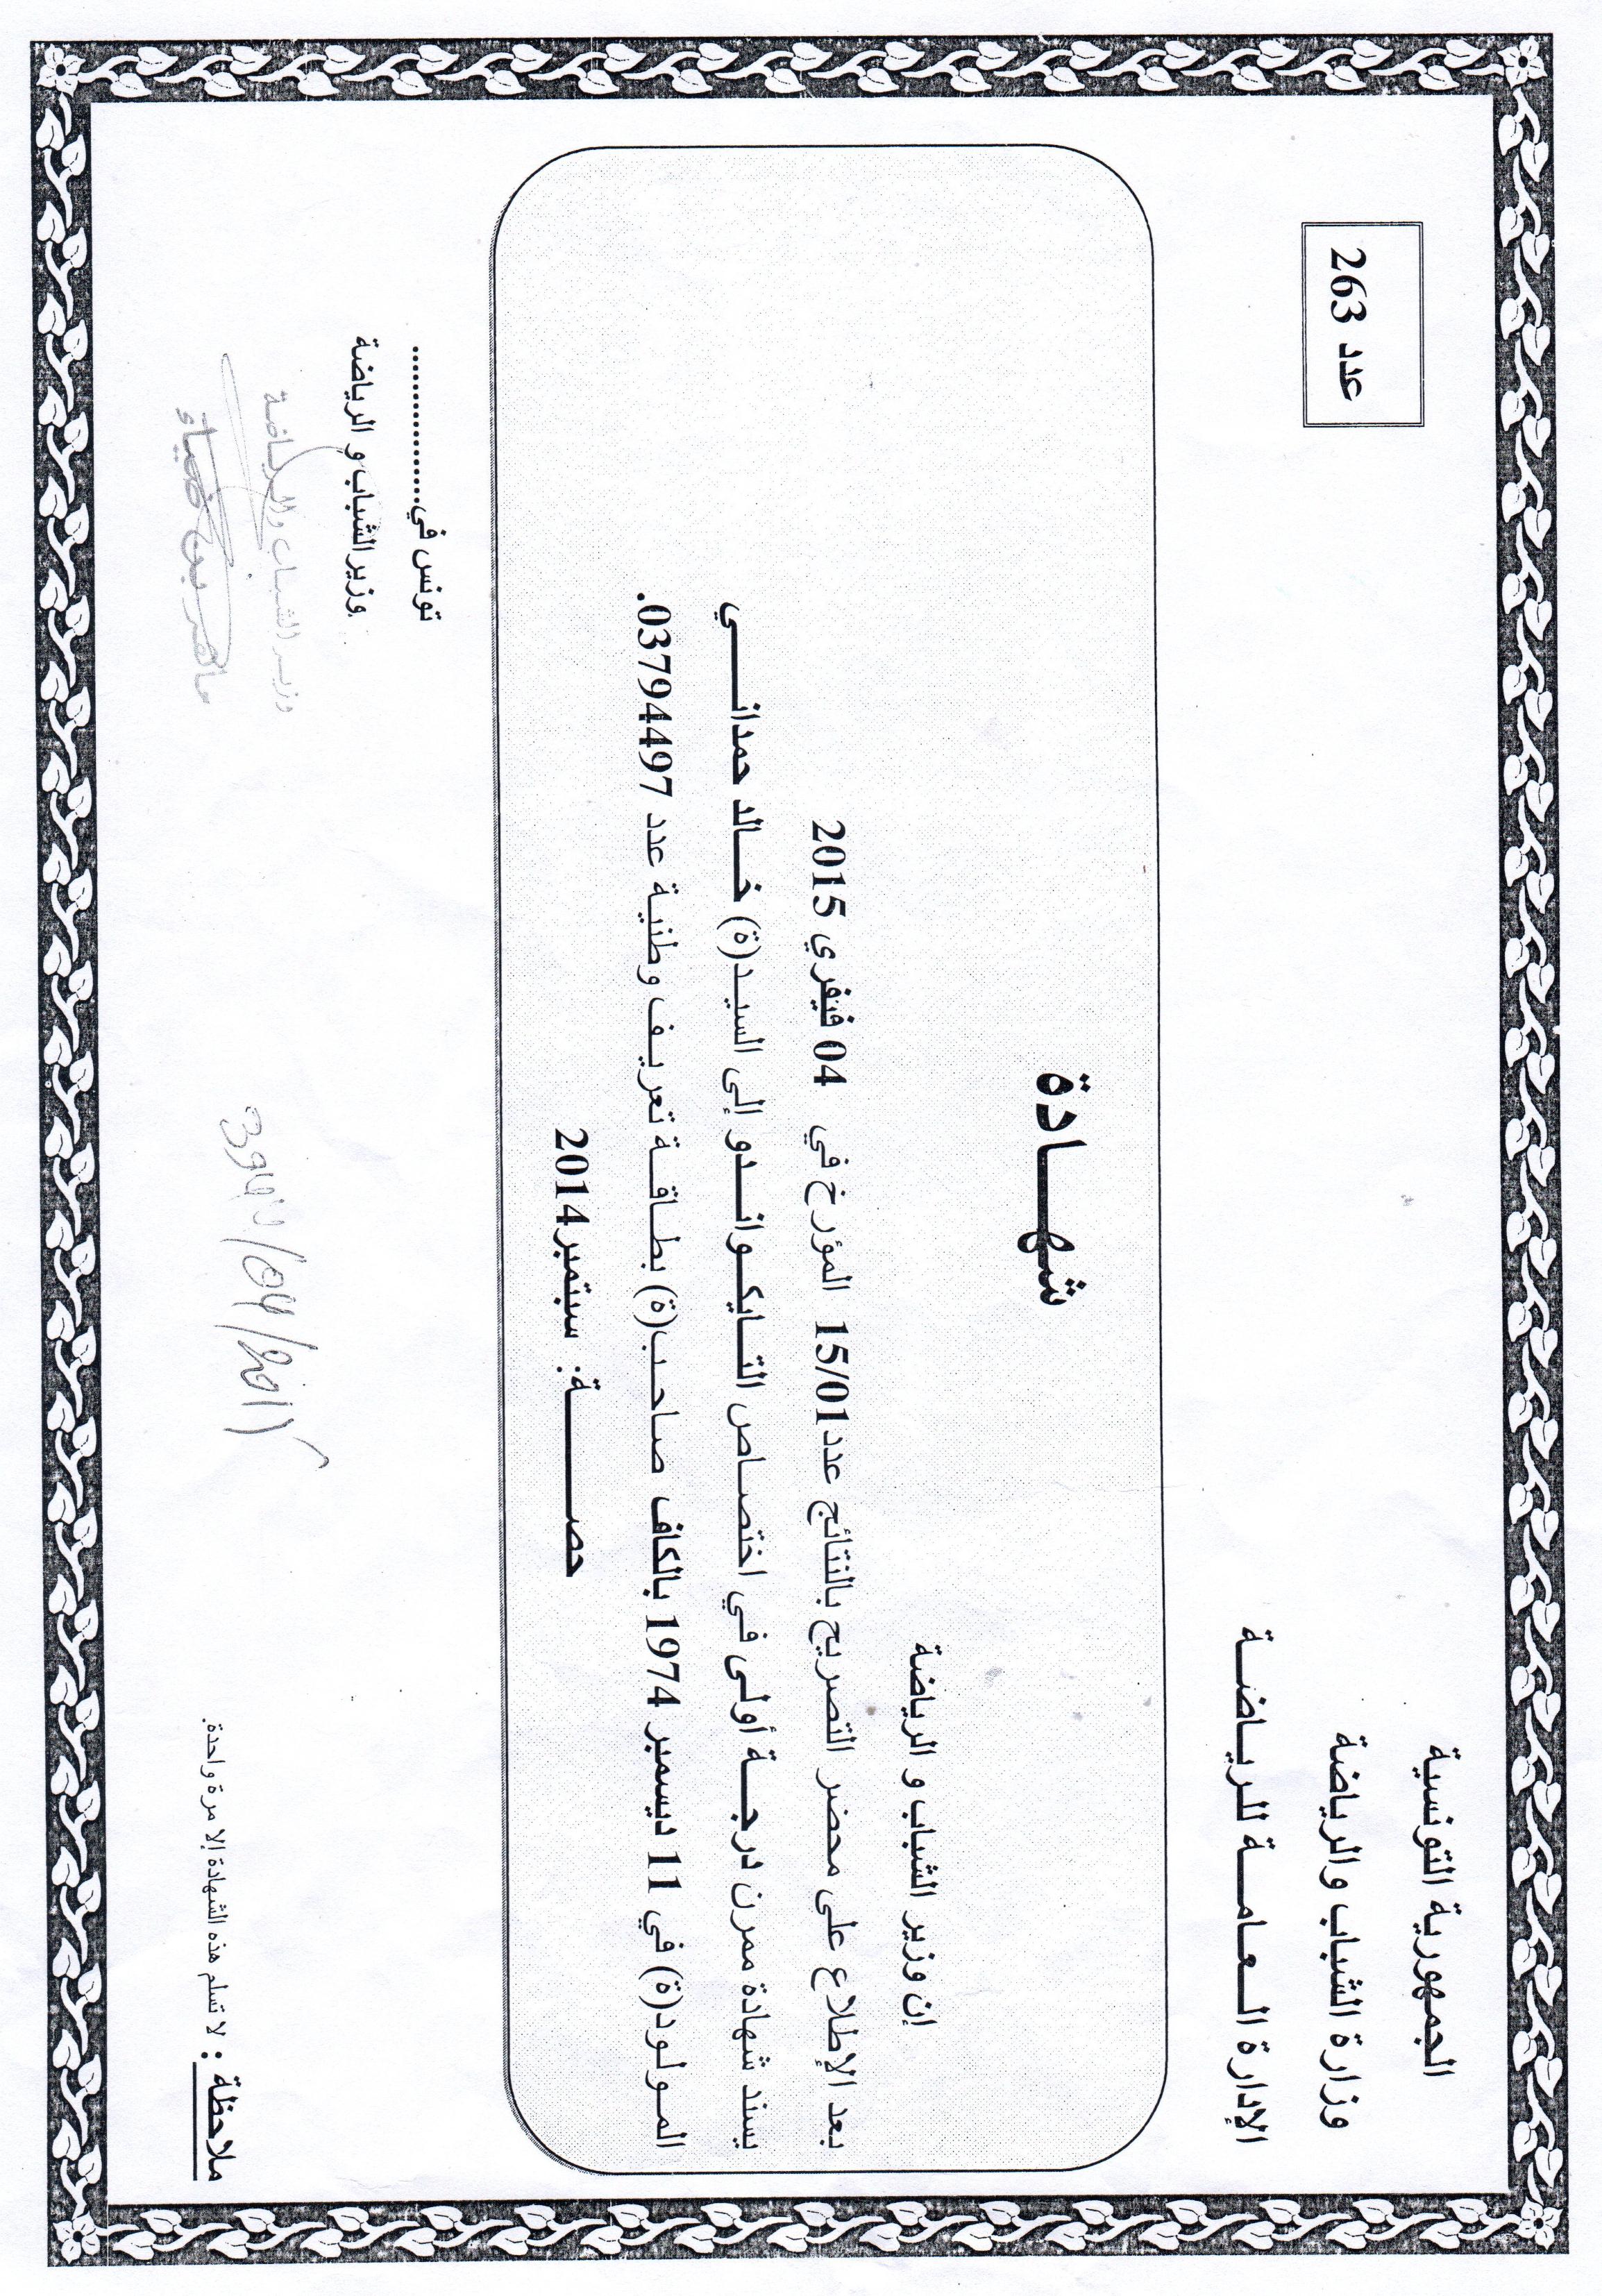 الجمهورية التونسية
وزارة الشباب والرياضة
الإدارة الـعـامـــة للريـاضــة
عدد 263
شهـــــادة
إن وزير الشباب و الرياضة
بعد الإطلاع على محضر التصريح بالنتائج عدد15/01 المؤرخ في 04 فيفري 2015
يسند شهادة ممرن درجـــة أولـى فـي اختصـاص التــايكــوانــدو إلى السيـد(ة) خــالد حمدانـــــي
المـولـود(ة) في 11 ديسمبر 1974 بالكاف صـاحـب(ة) بطـاقـة تعريـف وطنيـة عدد 03794497.
حصـــــــة: سبتمبر2014
تونس في..................
وزير الشباب و الرياضة
وزيـر الشبـاب والريـاضـة
ماهـر بـن ضيـاء
ملاحظة : لا تسلم هذه الشهادة إلا مرة واحدة.